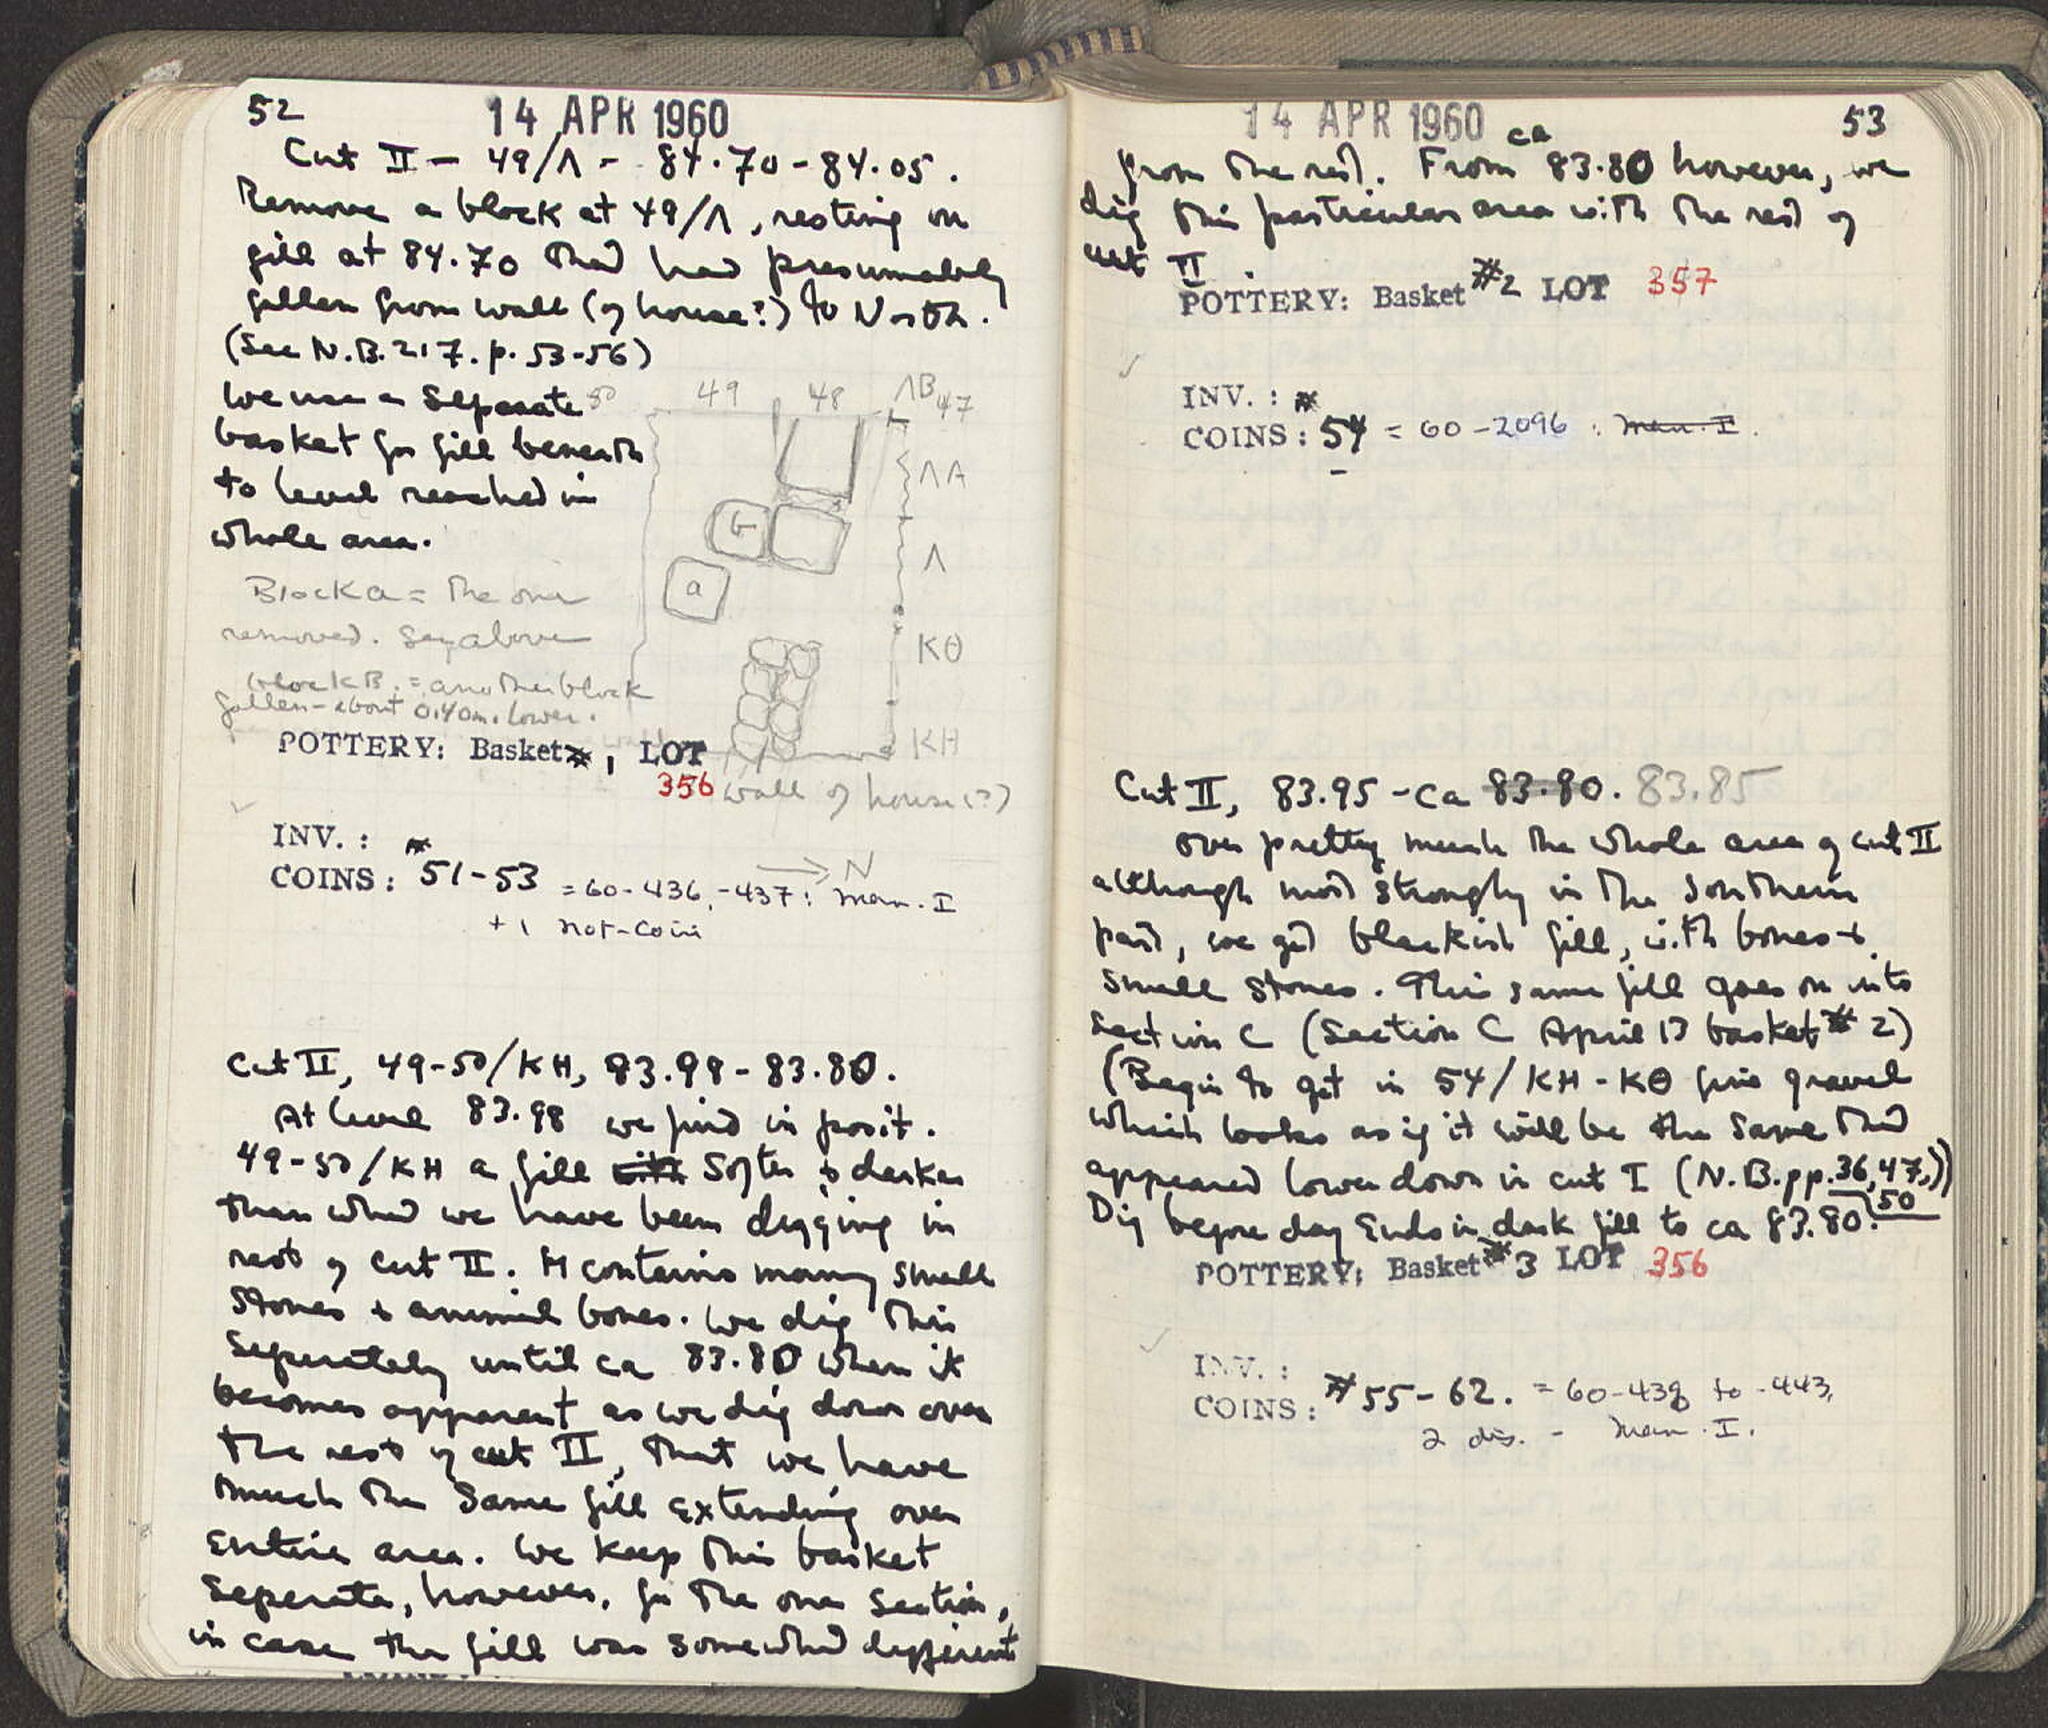 52
14 APR 1960
Cut II - 49/Λ - 84.70 - 84.05.
Remove a block at 49/Λ, resting on
fill at 84.70 that had presumably
fallen from wall (of house?) to North.
(See N.B. 217. p. 53-56)
We use a separate
basket for fill beneath
to level reached in
whole area.
50 49 48 47
ΛB
ΛA
Λ
KΘ
KH
b
a
Block a = the one
removed. See above
block B. = another block
fallen - about 0.40m. lower.
POTTERY: Basket # 1 LOT
356
wall of house (?)
→ N
INV. :
COINS: # 51-53 = 60-436, -437: Man. I
+ 1 not-coin
Cut II, 49-50/KH, 83.98 - 83.80.
At level 83.98 we find in posit.
49-50/KH a fill with softer & darker
than what we have been digging in
rest of cut II. It contains many small
stones & animal bones. We dig this
seperately until ca 83.80 when it
becomes apparent as we dig down over
the rest of cut II, that we have
much the same fill extending over
entire area. We keep this basket
seperate, however, for the one section,
in case the fill was somewhat different
14 APR 1960
53
from the rest. From ca 83.80 however, we
dig this particular area with the rest of
cut II.
POTTERY: Basket #2 LOT 357
INV. :
COINS: # 54 = 60-2096 : Man. I.
Cut II, 83.95 - ca 83.80. 83.85
Over pretty much the whole area of cut II
although most strongly in the Southern
part, we get blackish fill, with bones &
small stones. This same fill goes on into
Section C (Section C April 13 basket # 2)
(Begin to get in 54/KH-KΘ fine gravel
which looks as if it will be the same that
appeared lower down in cut I (N.B. pp. 36, 47, 50))
Dig before day ends in dark fill to ca 83.80.
POTTERY: Basket # 3 LOT 356
INV. :
COINS: # 55-62. = 60-438 to -443,
2 dis. - Man. I.